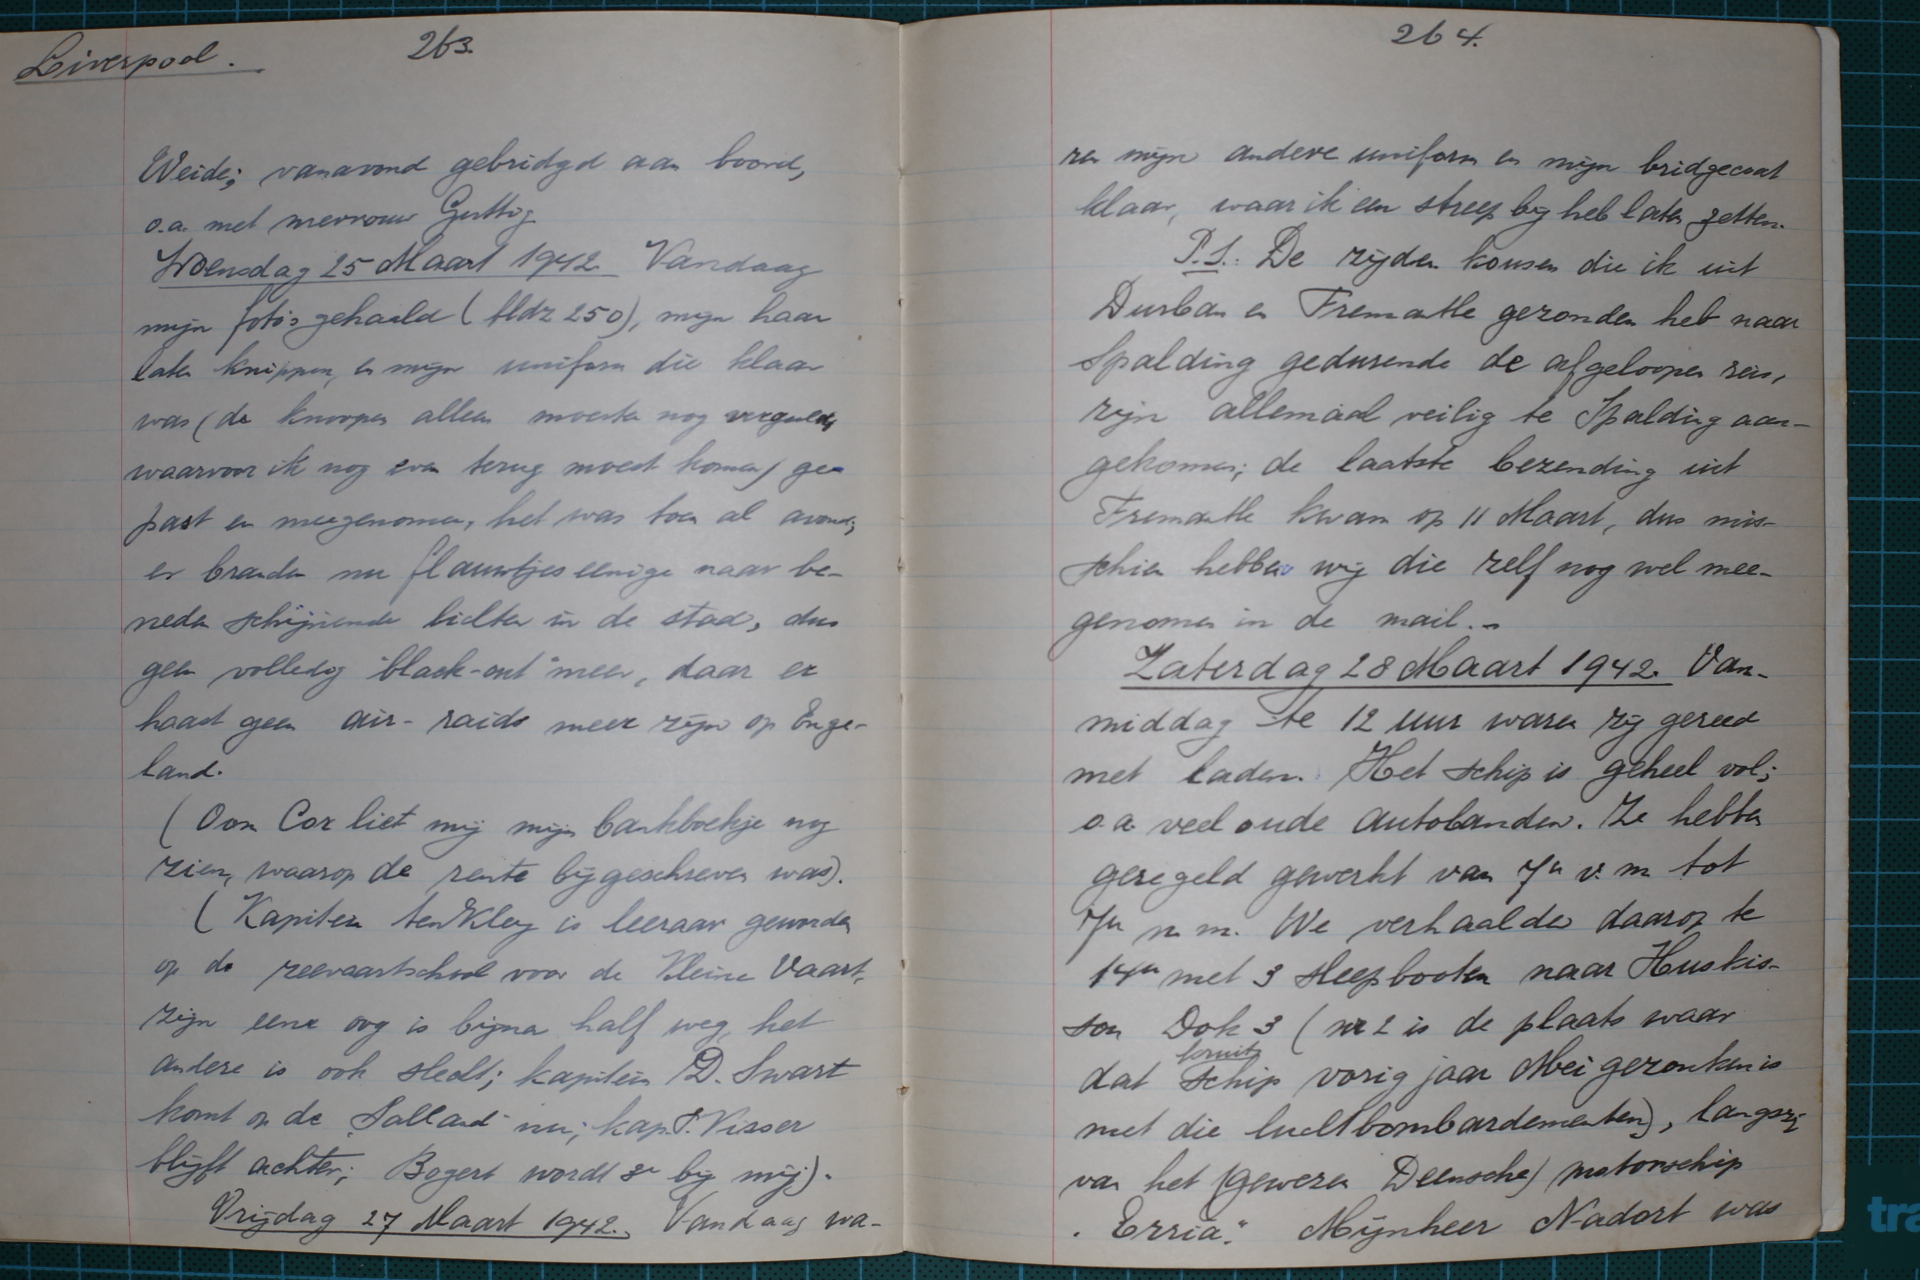 Liverpool.
263.
Weide; vanavond gebridgd aan boord,
o.a. met mevrouw Guttig
Woensdag 25 Maart 1942. Vandaag
mijn foto's gehaald (bldz 250), mijn haar
laten knippen, en mijn uniform die klaar
was (de knoopen alleen moesten nog verguld,
waarvoor ik nog even terug moest komen) ge-
past en meegenomen, het was toen al avond;
er branden nu flauwtjes eenige naar be-
neden schijnende lichten in de stad, dus
geen volledig "black-out" meer, daar er
haast geen air-raids meer zijn op Enge-
land.
(Oom Cor liet mij mijn bankboekje nog
zien, waarop de rente bijgeschreven was).
(Kapitein ten Kley is leeraar geworden
op de zeevaartschool voor de Kleine Vaart,
zijn eene oog is bijna half weg, het
andere is ook slecht; kapitein D. Swart
komt op de "Salland" nu; kap. P. Visser
blijft achter; Bogert wordt 3e bij mij).
Vrijdag 27 Maart 1942. Vandaag wa-
264.
ren mijn andere uniform en mijn bridgecoat
klaar, waar ik een streep bij heb laten zetten.
P.S.: De zijden kousen die ik uit
Durban en Fremantle gezonden heb naar
Spalding gedurende de afgeloopen reis,
zijn allemaal veilig te Spalding aan-
gekomen; de laatste bezending uit
Fremantle kwam op 11 Maart, dus mis-
schien hebben wij die zelf nog wel mee-
genomen in de mail.-
Zaterdag 28 Maart 1942. Van-
middag te 12 uur waren zij gereed
met laden. Het schip is geheel vol;
o.a. veel oude autobanden. Ze hebben
geregeld gewerkt van 7u v.m. tot
7u n.m. We verhaalden daarop te
14u met 3 sleepbooten naar Huskis-
son Dok 3 (nr 2 is de plaats waar
dat schip vorig jaar Mei gezonken is
met die luchtbombardementen), langszij
van het (gewezen Deensche) motorschip
"Erria." Mijnheer Nadort was
tra